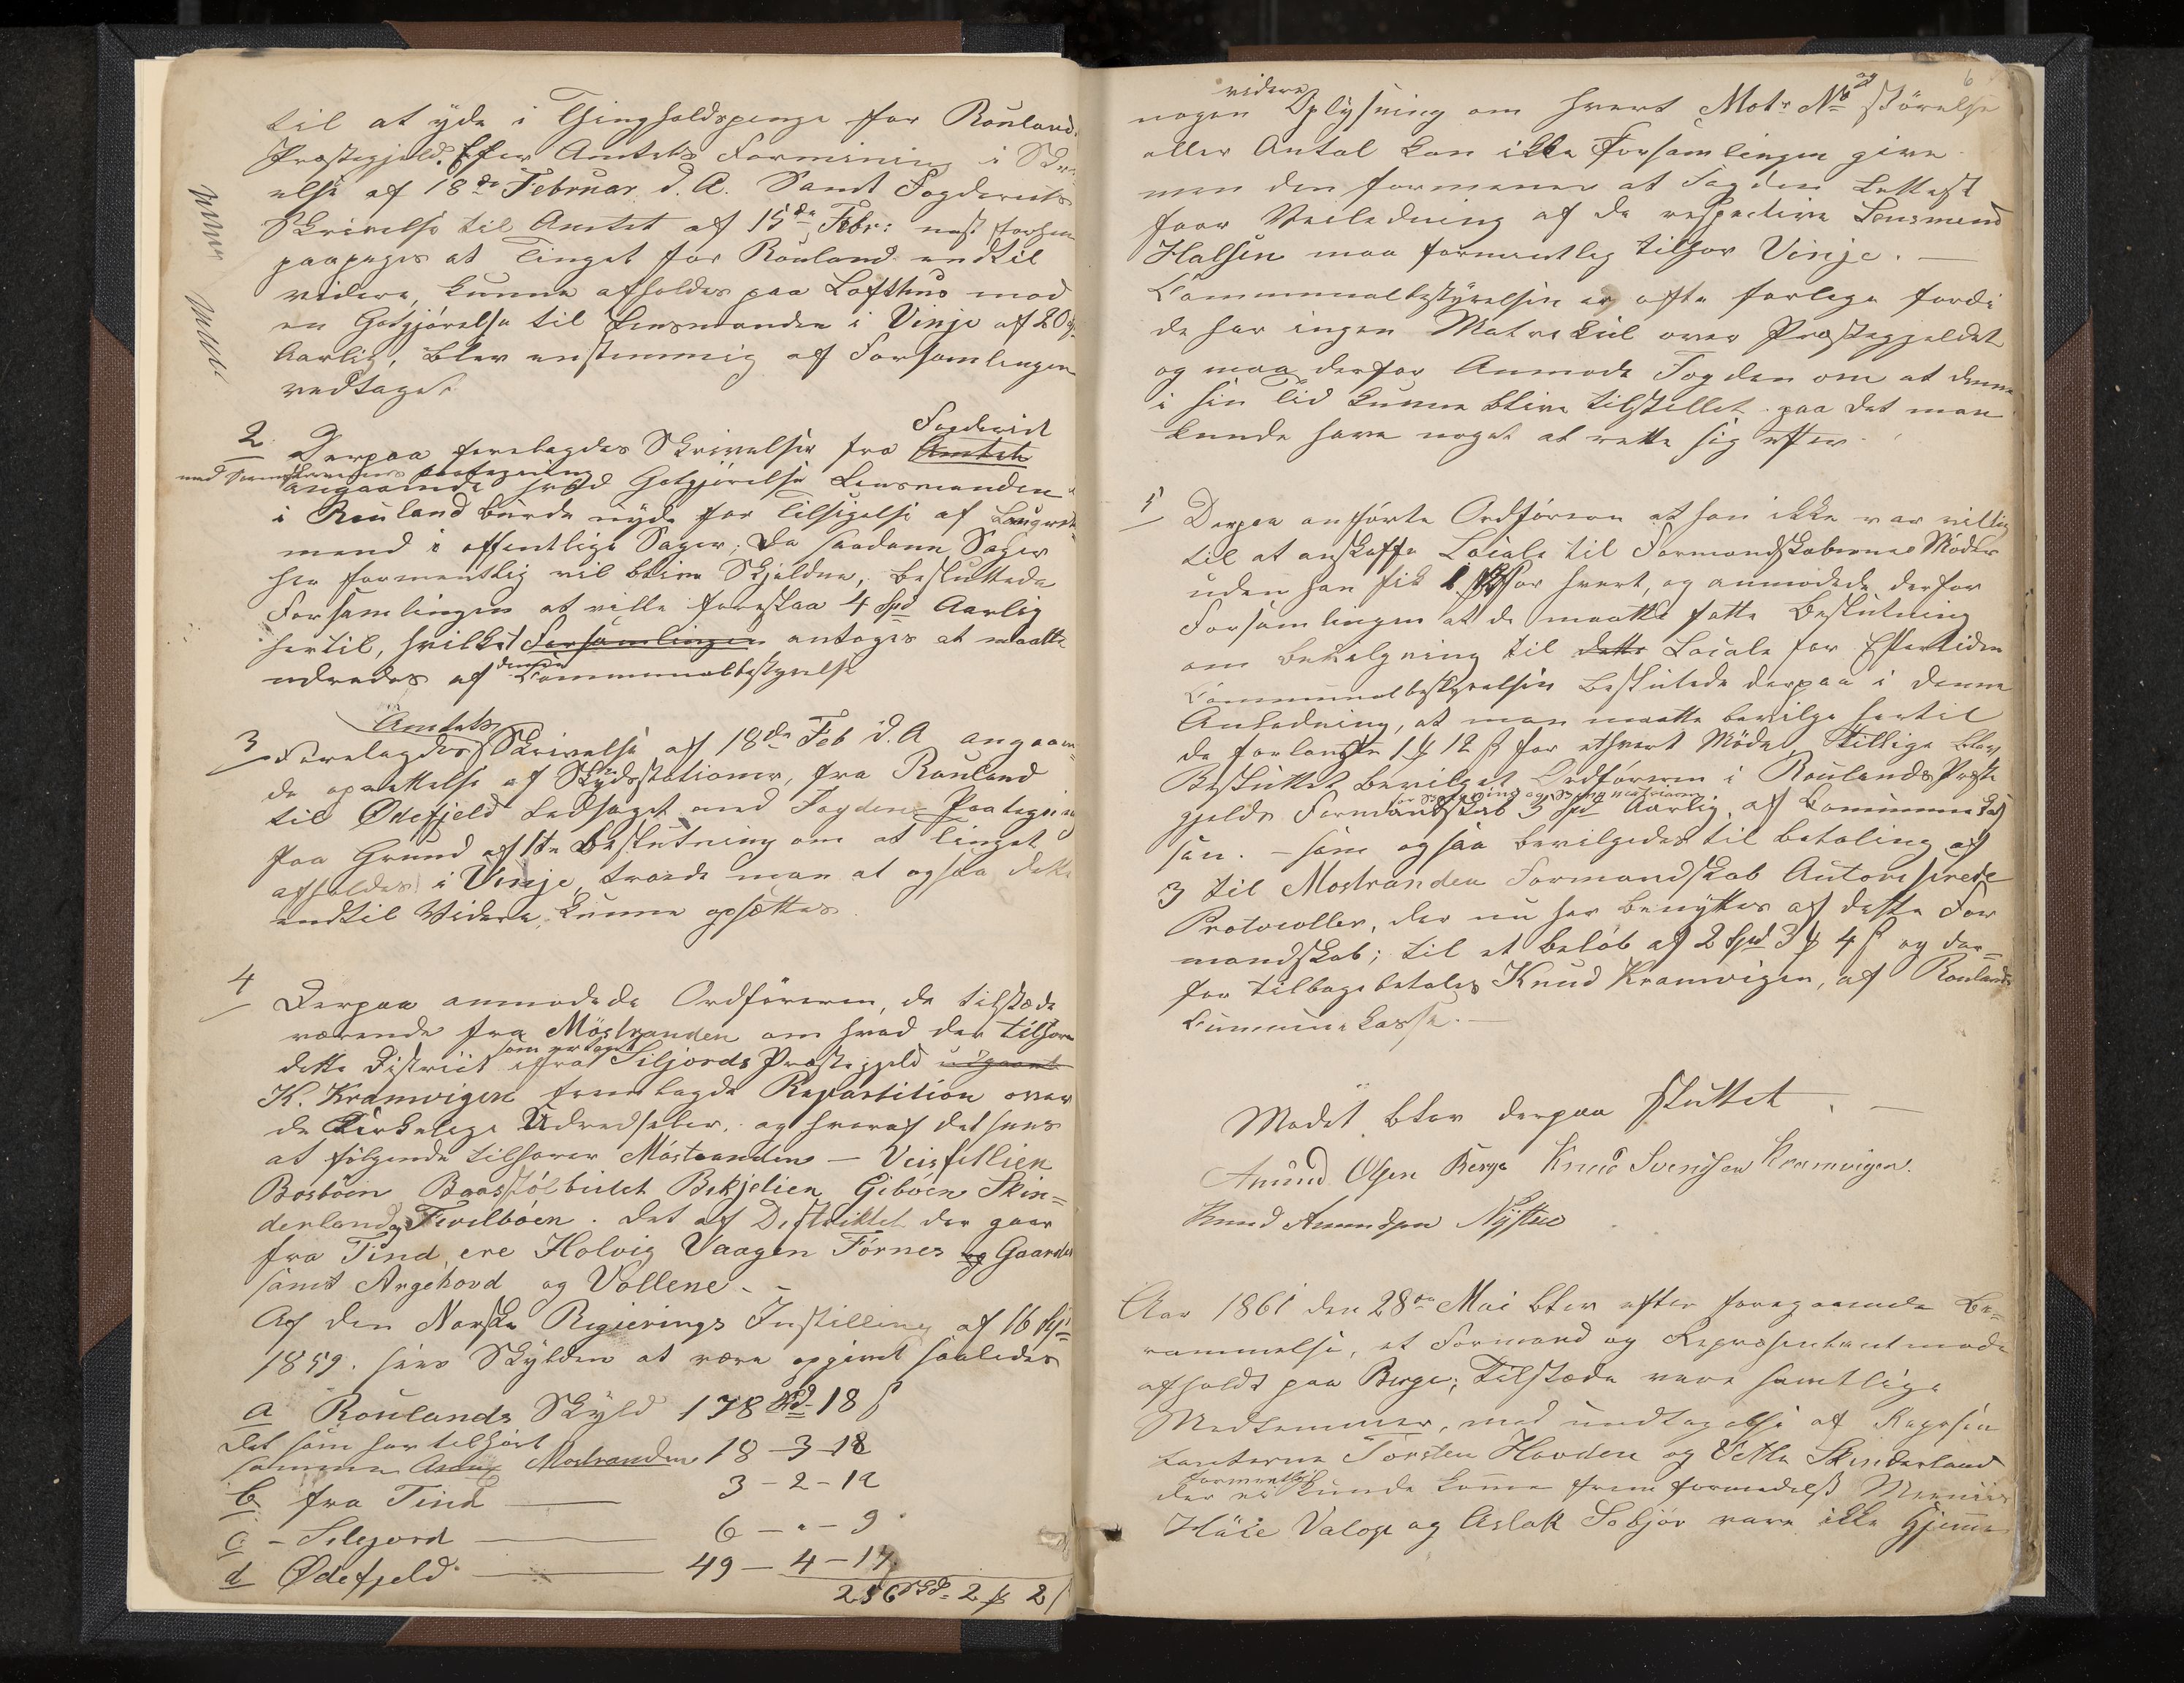 til at yde i Thingholdspenge for Rouland
Præstegjeld. Efter Amtets Formening i Skriv-
else af 18de Februar d. A. Samt Fogderiets
Skrivelse til Amtet af 15de Febr: næst forhen
paapeges at Tinget for Rouland indtil
videre, kunne afholdes paa Lofthus mod
en Godgjørelse til Lensmanden i Vinje af 20
Aarlig, blev enstemmig af Forsamlingen
vedtaget
Fogderiet
2 Derpaa forelagdes Skrivelse fra Amtet
med paategning
angaaende hvad Godgjørelse Lensmanden
i Rouland burde nyde for Tilsigelse af Laugrets-
mænd i offentlige Sager; Da saadanne Sager
her formentlig vil blive Skjeldne, besluttede
Forsamlingen at ville foreslaa 4 Spd Aarlig
hertil, hvilket Forsamlingen antoges at maatte
udredes af denne Communalbestyrelse
Amtets
3 Forelagdes Skrivelse af 18de Feb d. A angaaen-
de oprettelse af Skydsstationer, fra Rouland
til Ødefjeld ledsaget med Fogdens Paategning
Paa Grund af 1te Beslutning om at Tinget
afholdes i Vinje troede man at ogsaa dette
indtil Videre, kunne opsættes
4 Derpaa anmodede Ordføreren, de tilstede
værende fra Möstranden om hvad der tilhører
dette District som er taget ifra Siljords Præstegjeld udgaaet
K. Kramvigen fremlagde Repartition over
de Kirkelige Udredseler, og hvoraf det sees
at følgende tilhører Möstranden — Veisfellien
Bosbøen Baasstølbulet Bekjelien Gibøen Skin=
derland og Tveilbøen. Det af Distriktet der gaar
fra Tind, ere Holvig Vaagen Förnes og Gaarden
samt Argehovd og Vollene. -
Af den Norske Regierings Instilling af 16
1859. sees Skylden at være opgivet saaledes
a Roulands Skyld 178 Spd- 18 ſ
det som har tilhørt
sammen Möstranden 18 - 3 - 18
b fra Tind — 3 - 2 - 12
c - Silejord — 6 - „ - 9
d Ødefjeld — 49 - 4 - 17
256 Spd= 2 2
6
videre og
nogen Oplysning om hvert Matr No störrelse
eller Antal kan ikke Forsamlingen give
men den formener at Fogden lettest
faar Veiledning af de respective Lensmænd
Halsen maa formentlig tilhør Vinje. —
Communalbestyrelsen er ofte forlege fordi
de har ingen Matrekul over Præstegjeldet
og maa derfor Anmode Fogden om at denne
i sin Tid kunne blive tilstillet paa det man
kunde have noget at rette sig efter.
5 Derpaa anførte Ordføreren at han ikke var villig
til at anskaffe Locale til Formandskabernes Møder
uden han fik 1 for hvert, og anmodede derfor
Forsamlingen at de maatte fatte Beslutning
om bevilgning til dette Locale for Eftertiden
Communalbestyrelsen besluttede derpaa i denne
Anledning, at man maatte bevilge hertil
de forlangte 1 12 ſ for ethvert Möde, Tillige blev
Besluttet bevilget Ordføreren i Roulands Præste
gjelds Formandskab 3 Spd Aarlig, af Communekas
sen. - som ogsaa bevilgedes til betaling af
3 til Mostrandens Formandskab Autoriserede
Protocoller, der nu her benyttes af dette For
mandskab; til et beløb af 2 Spd 3 4 ſ og der=
for tilbagebetales Knud Kramvigen, af Roulands
Communekasse. —
Mødet blev derpaa sluttet. —
Amund Olsen Berge Knud Svendsen Kramvigen.
Knud Amundsen Nystue
Aar 1861 den 28de Mai blev efter foregaaende Be=
rammelse, et Formand og Repræsentantmøde
afholdt paa Berge; Tilstede vare samtlige
Medlemmer, med undtagelse af Repræsen
tanterne Torsten Hovden og Vetle Skinderland
formentlig
der ei kunde komme frem formedelst Menniser
Haie Valoge og Aslak Sobjör vare ikke Hjemme